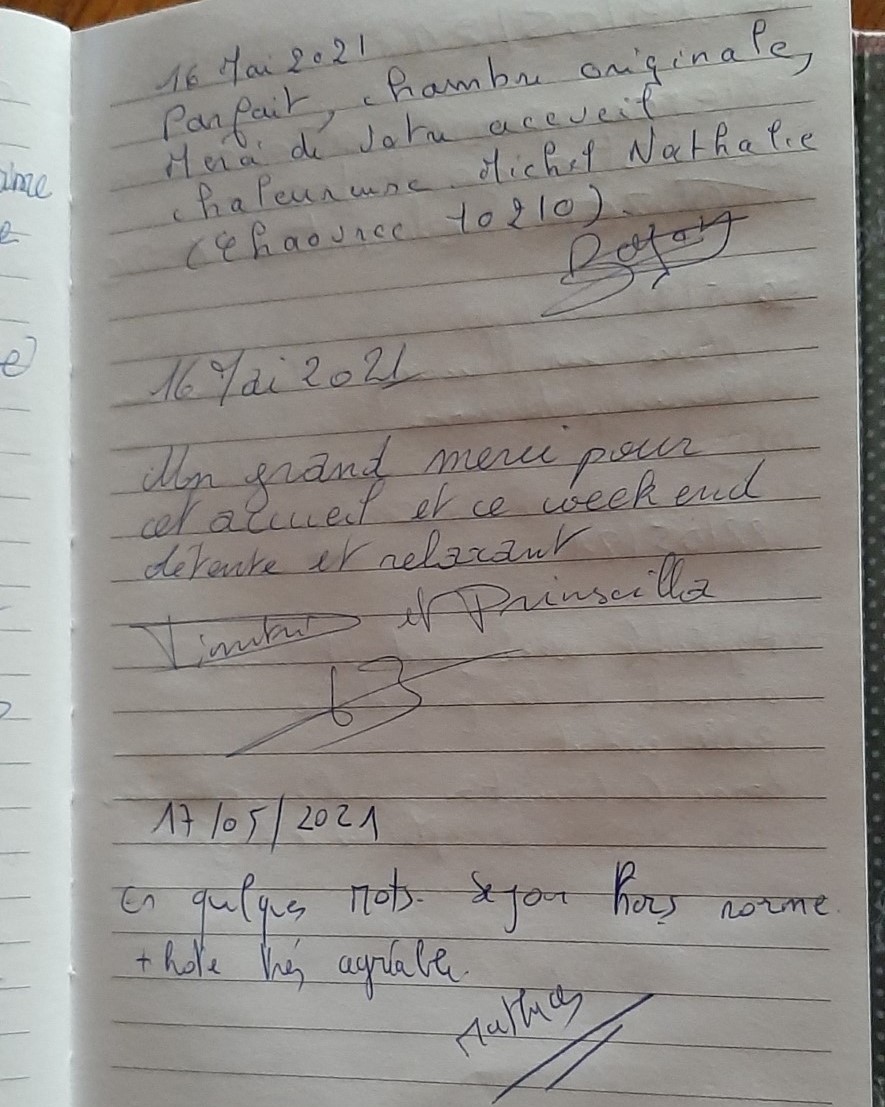 16 Mai 2021
Parfait, chambre originale,
Merci de votre acceuil
chaleureuse. Michel Nathalie
(Chaource 10210).
16 Mai 2021
Un grand merci pour
cet accueil et ce week end
détente et relaxant
et Prinscilla
17/05/2021
En quelques mots. Sejour hors norme.
+ hôte très agréable.
ime
e)